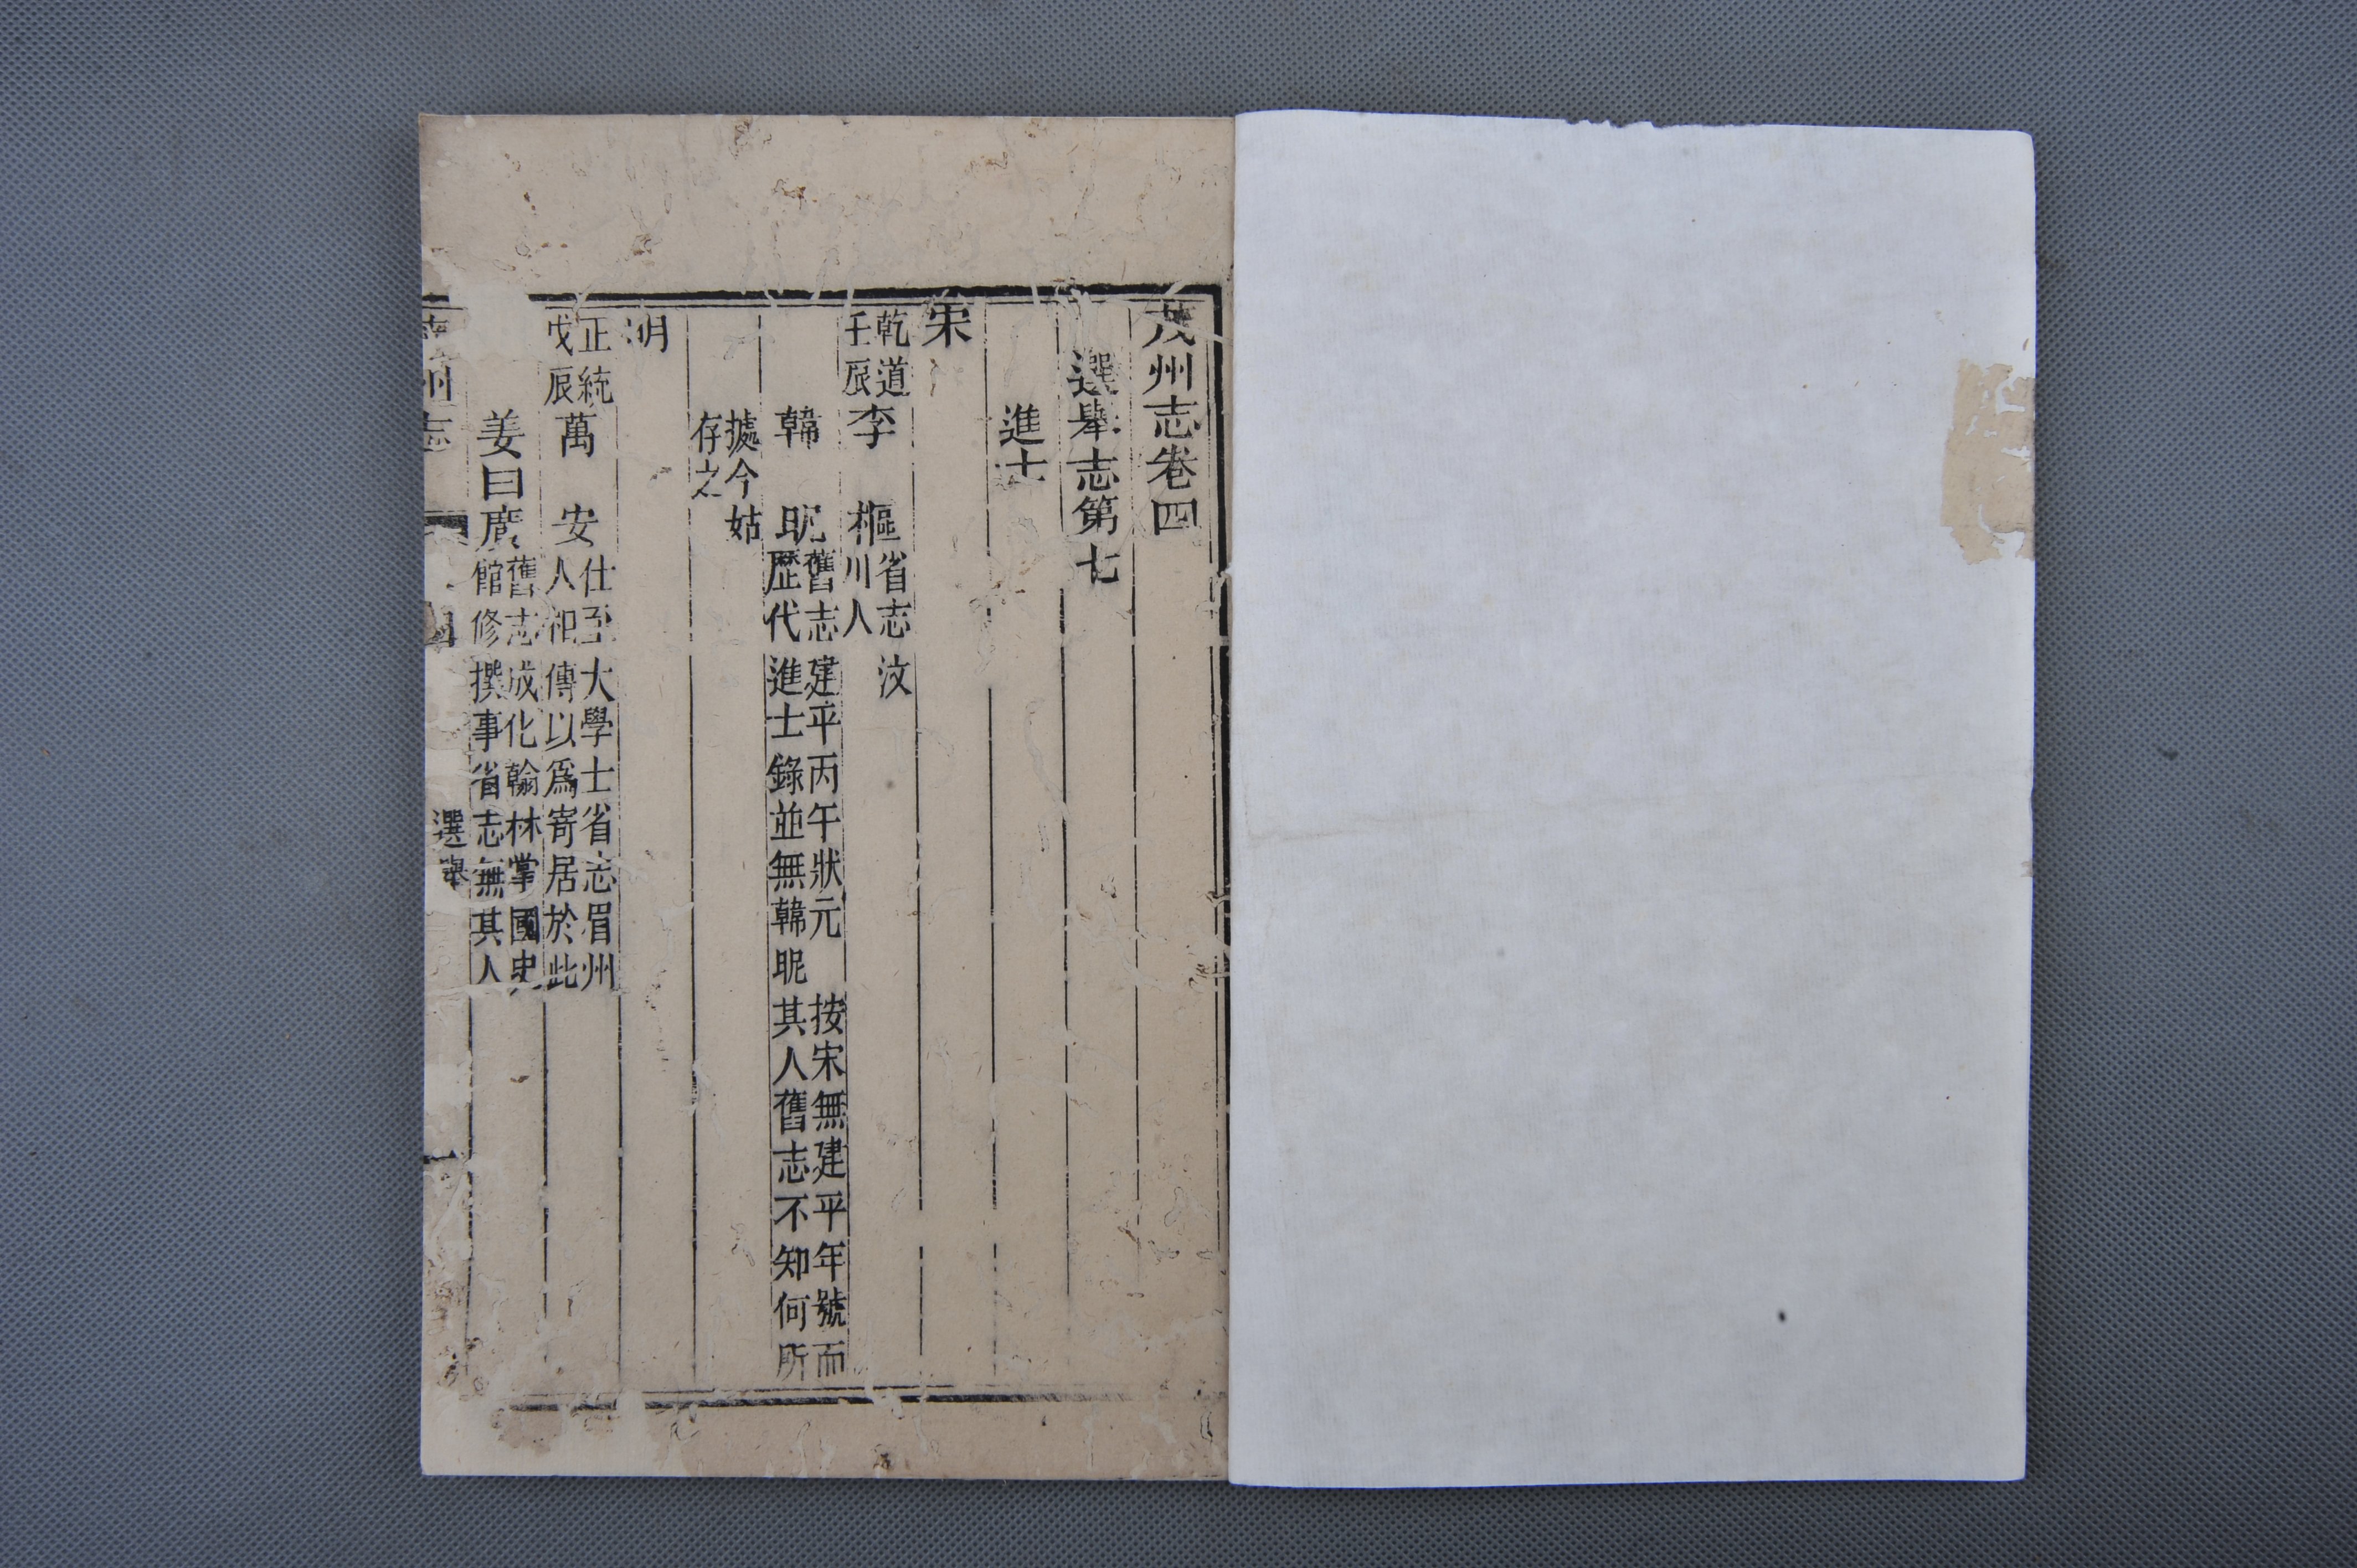 茂州志卷四
選舉志第七
進士
宋
乾道
壬辰
李　樞
省志汶
川人
韓　昵
舊志建平丙午狀元　按宋無建平年號而
歴代進士錄並無韓昵其人舊志不知何所
據今姑
存之
明
正統
戊辰
萬　安
仕至大學士省志眉州
人相傳以爲寄居於此
姜曰廣
舊志成化翰林掌國史
館修撰事省志無其人
州志
選舉
一